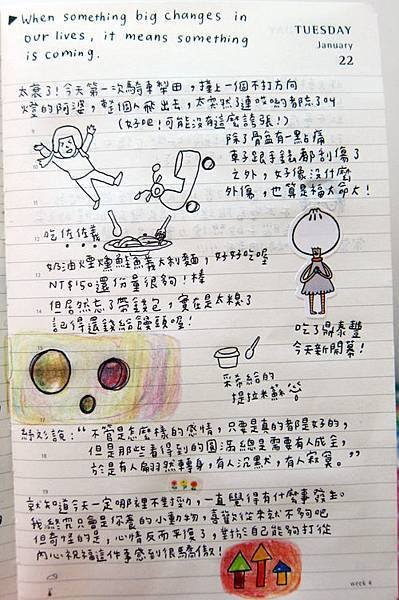 When something big changes in
our lives, it means something
is coming.
TUESDAY
January
22
太衰了!今天第一次騎車犁田,撞上一個不打方向
燈的阿婆,整個人飛出去,太突然了連哎喲都忘了叫
(好吧!可能沒有這麼誇張!)
除了骨盆有一點痛
車子跟手錶都刮傷了
之外,好像沒什麼
外傷,也算是福大命大!
吃佐佐義
奶油煙燻鮭魚義大利麵,好好吃喔
NT$150還份量很夠!棒
但居然忘了帶錢包,實在是太糗了
記得還錢給饅頭喔!
吃了鼎泰豐
今天新開幕!
采希給的
提拉米蘇
說:“不管是怎麼樣的感情,只要是真的都是好的,
但是那些看得到的圓滿總是需要有人成全,
於是有人翩翩然轉身,有人沉默,有人寂寞。”
就知道今天一定哪裡不對勁,一直覺得有什麼事發生。
我終究只會是你養的小動物,喜歡從來就不夠吧
但奇怪的是,心情反而平復了,對於自己能夠打從
內心祝福這件事感到很驕傲!
9
10
11
12
13
14
15
16
17
18
19
20
21
week 4